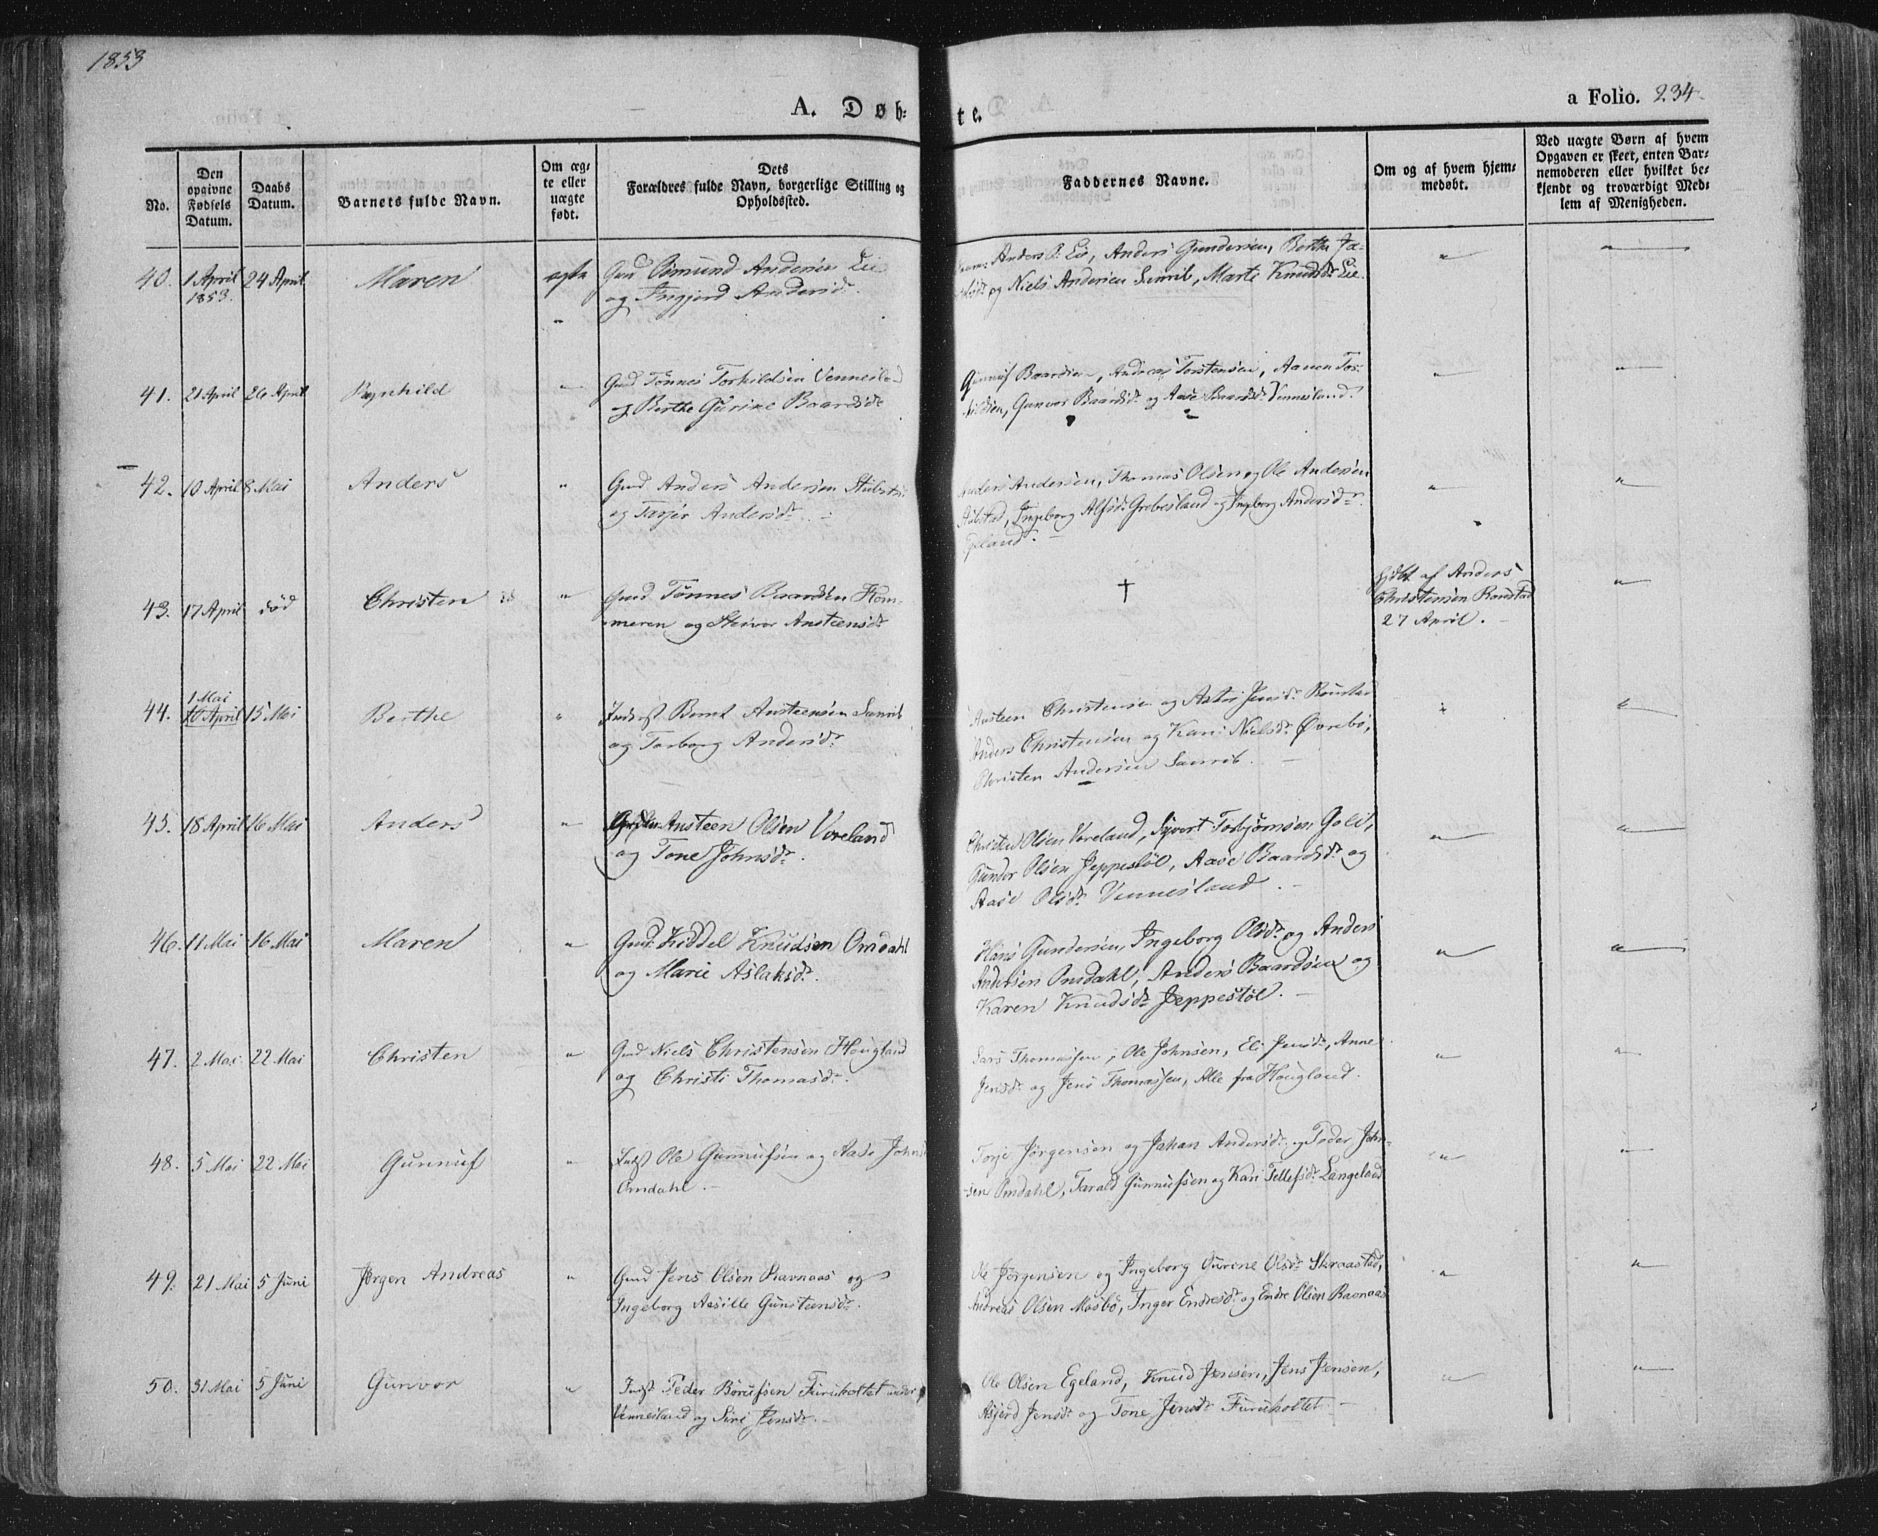 1853
A. Døb-
te.
a Folio. 234.
No.
Den opgivne Fødsels Datum.
Daabs Datum.
Barnets fulde Navn.
Om ægte eller uægte født.
Dets Forældres fulde Navn, borgerlige Stilling og Opholdssted.
Faddernes Navne.
Om og af hvem hjemmedøbt.
Ved uægte Børn af hvem Opgaven er skeet, enten Barnemoderen eller hvilket bekjendt og troværdigt Medlem af Menigheden.
40. 1 April 1853. 24 April Maren ægte Gmd Osmund Andersen Lie
og Ingjerd Andersdr.
Anders Lie, Anders Gundersen, Berthe
og Niels Andersen Samrib, Marte Knudsdr Lie
41. 21 April 26 April Reinhild " Gmd Tönnes Torkildsen Vennesland
og Berthe Gurine Baardsdr
Gunnuf Baardsen, Andreas Torstensen, Aanon Tor-
kildsen, Gunvor Baardsdr og Aase Baardsdr Vennesland.
42. 10 April 8 Mai Anders " Gmd Anders Andersen Stubstad
og Tarjer Andersdr.
Anders Andersen, Thomas Olsen og Ole Andersen
Ingeborg Alfsdr Grebesland og Ingborg Andersdr
Egeland.
43. 17 April död Christen " Gmd Tönnes Baardsen Hom-
meren og Steivor Ansteensdr
†
hjdbt af Anders
Christensen Roustad
27 April.
44. 1 Mai 10 April 15 Mai Berthe " Indst Bernt Ansteensen Samrib
og Torborg Andersdr
Ansteen Christensen og Jensdr Roustad
Anders Christensen og Kari Nielsdr Øvrebö,
Christen Andersen Samrib.
45. 18 April 16 Mai Anders " Ansteen Olsen Voreland
og Tone Johnsdr.
Christen Olsen Voreland, Syvert Torbjörnsen Golit,
Gunder Olsen Jeppestöl, Aase Baardsdr og
Aase Olsdr Vennesland.
46. 11 Mai 16 Mai Maren " Gmd. Kiddel Knudsen Omdahl
og Marie Aslaksdr.
Hans Gundersen, Ingeborg Olsdr og Anders
Andersen Omdahl, Anders Baardsen og
Karen Knudsdr Jeppestöl.
47. 2 Mai 22 Mai Christen " Gmd Niels Christensen Hougland
og Christi Thomasdr.
Lars Thomassen, Ole Johnsen, Eli Jensdr, Anne
Jensdr og Jens Thomassen, Alle fra Hougland.
48. 5 Mai 22 Mai Gunnuf " Indst Ole Gunnufsen og Aase Johnsd
Omdahl.
Torje Jörgensen og Johan Andersdr og Peder John-
sen Omdahl, Tarald Gunnufsen og Kari Tellefsdr Langeland
49. 21 Mai 5 Juni Jörgen Andreas " Gmd Jens Olsen Ravnaas og
Ingeborg Aasille Gunsteensdr.
Ole Jörgensen og Ingeborg Gurine Olsdr Skraastad,
Andreas Olsen Mosbö, Inger Endresdr og Endre Olsen Ravnaas
50. 31 Mai 5 Juni Gunvor " Indst Peder Börufsen Furuholtet under
Vennesland og Siri Jensdr.
Ole Olsen Egeland, Knud Jensen, Jens Jensen,
Asjerd Jensdr og Tone Jensdr Furuholtet